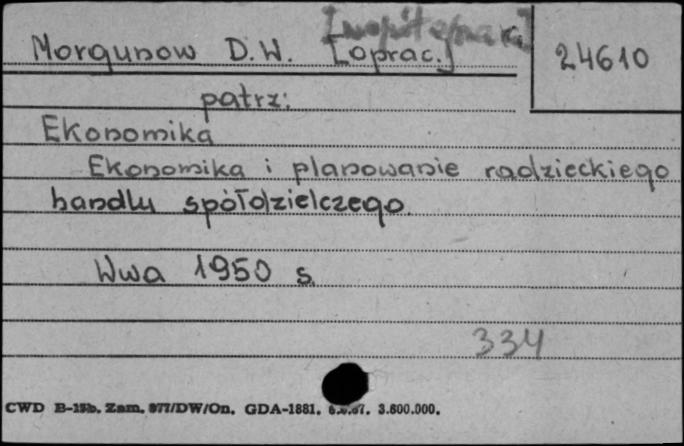 Morgunow D.W. [oprac.]
24610
patrz:
Ekonomika
Ekonomika i planowanie radzieckiego
handlu spółdzielczego
Wwa 1950 s.
334
CWD B-15b. Zam. 977/DW/On. GDA-1881. 3.600.000.